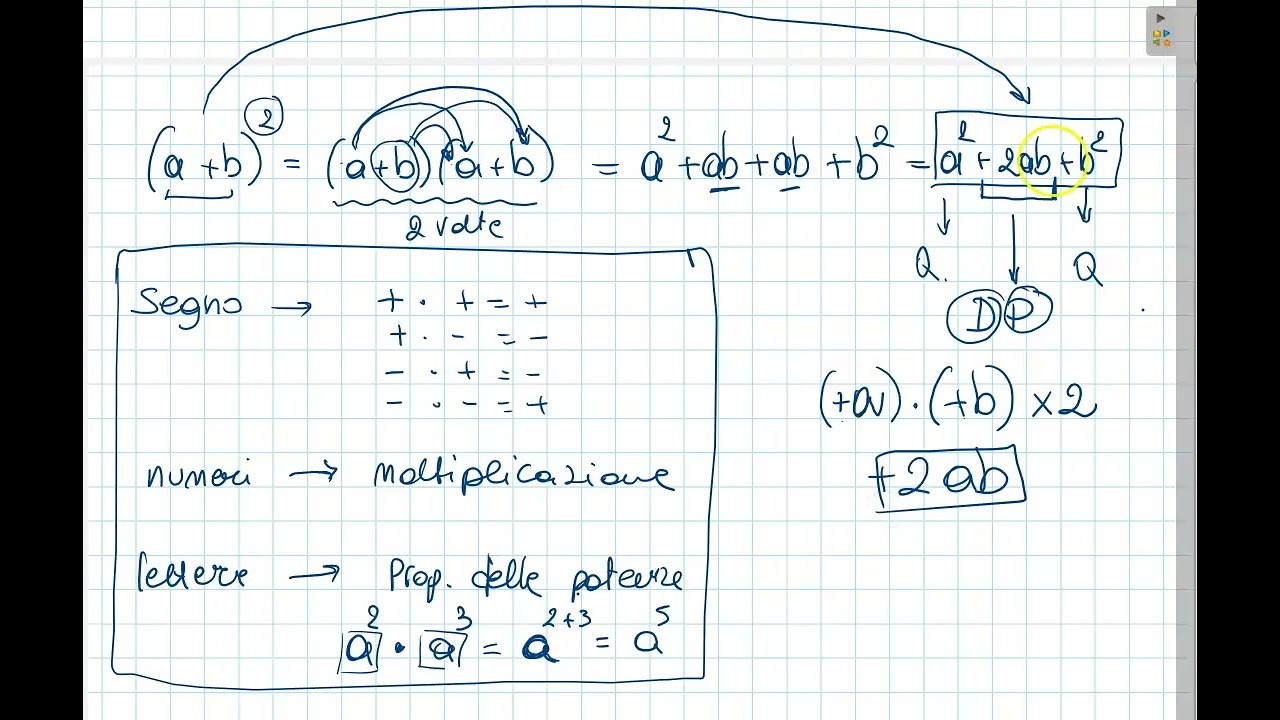 (a + b)² = (a + b)(a + b) = a² + ab + ab + b² = a² + 2ab + b²
2 volte
Q. DP Q
Segno → + · + = +
+ · - = -
- · + = -
- · - = +
(+a) · (+b) × 2
+2ab
numeri → moltiplicazione
lettere → Prop. delle potenze
a² · a³ = a²⁺³ = a⁵